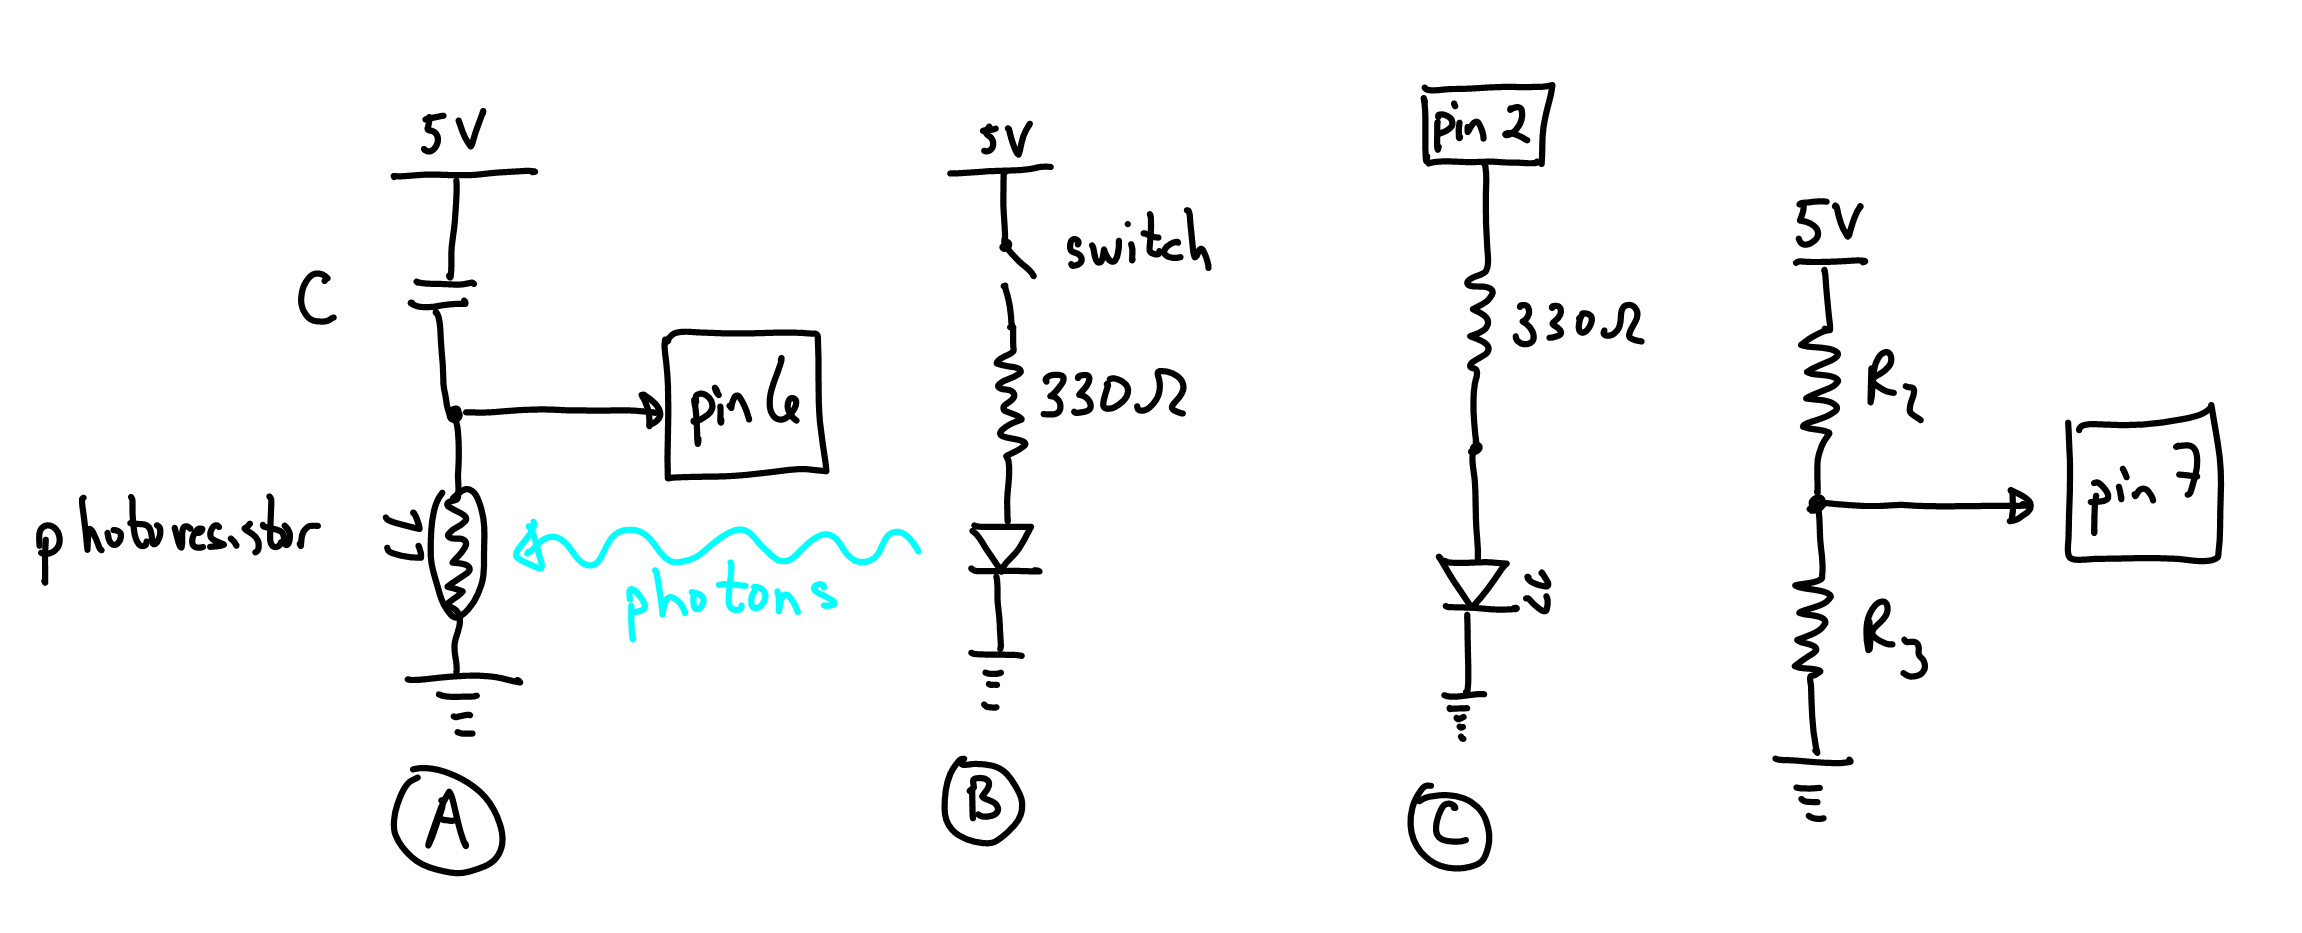 5V
C
pin 6
photoresistor
photons
A
5V
switch
330Ω
B
pin 2
330Ω
C
5V
R2
pin 7
R3